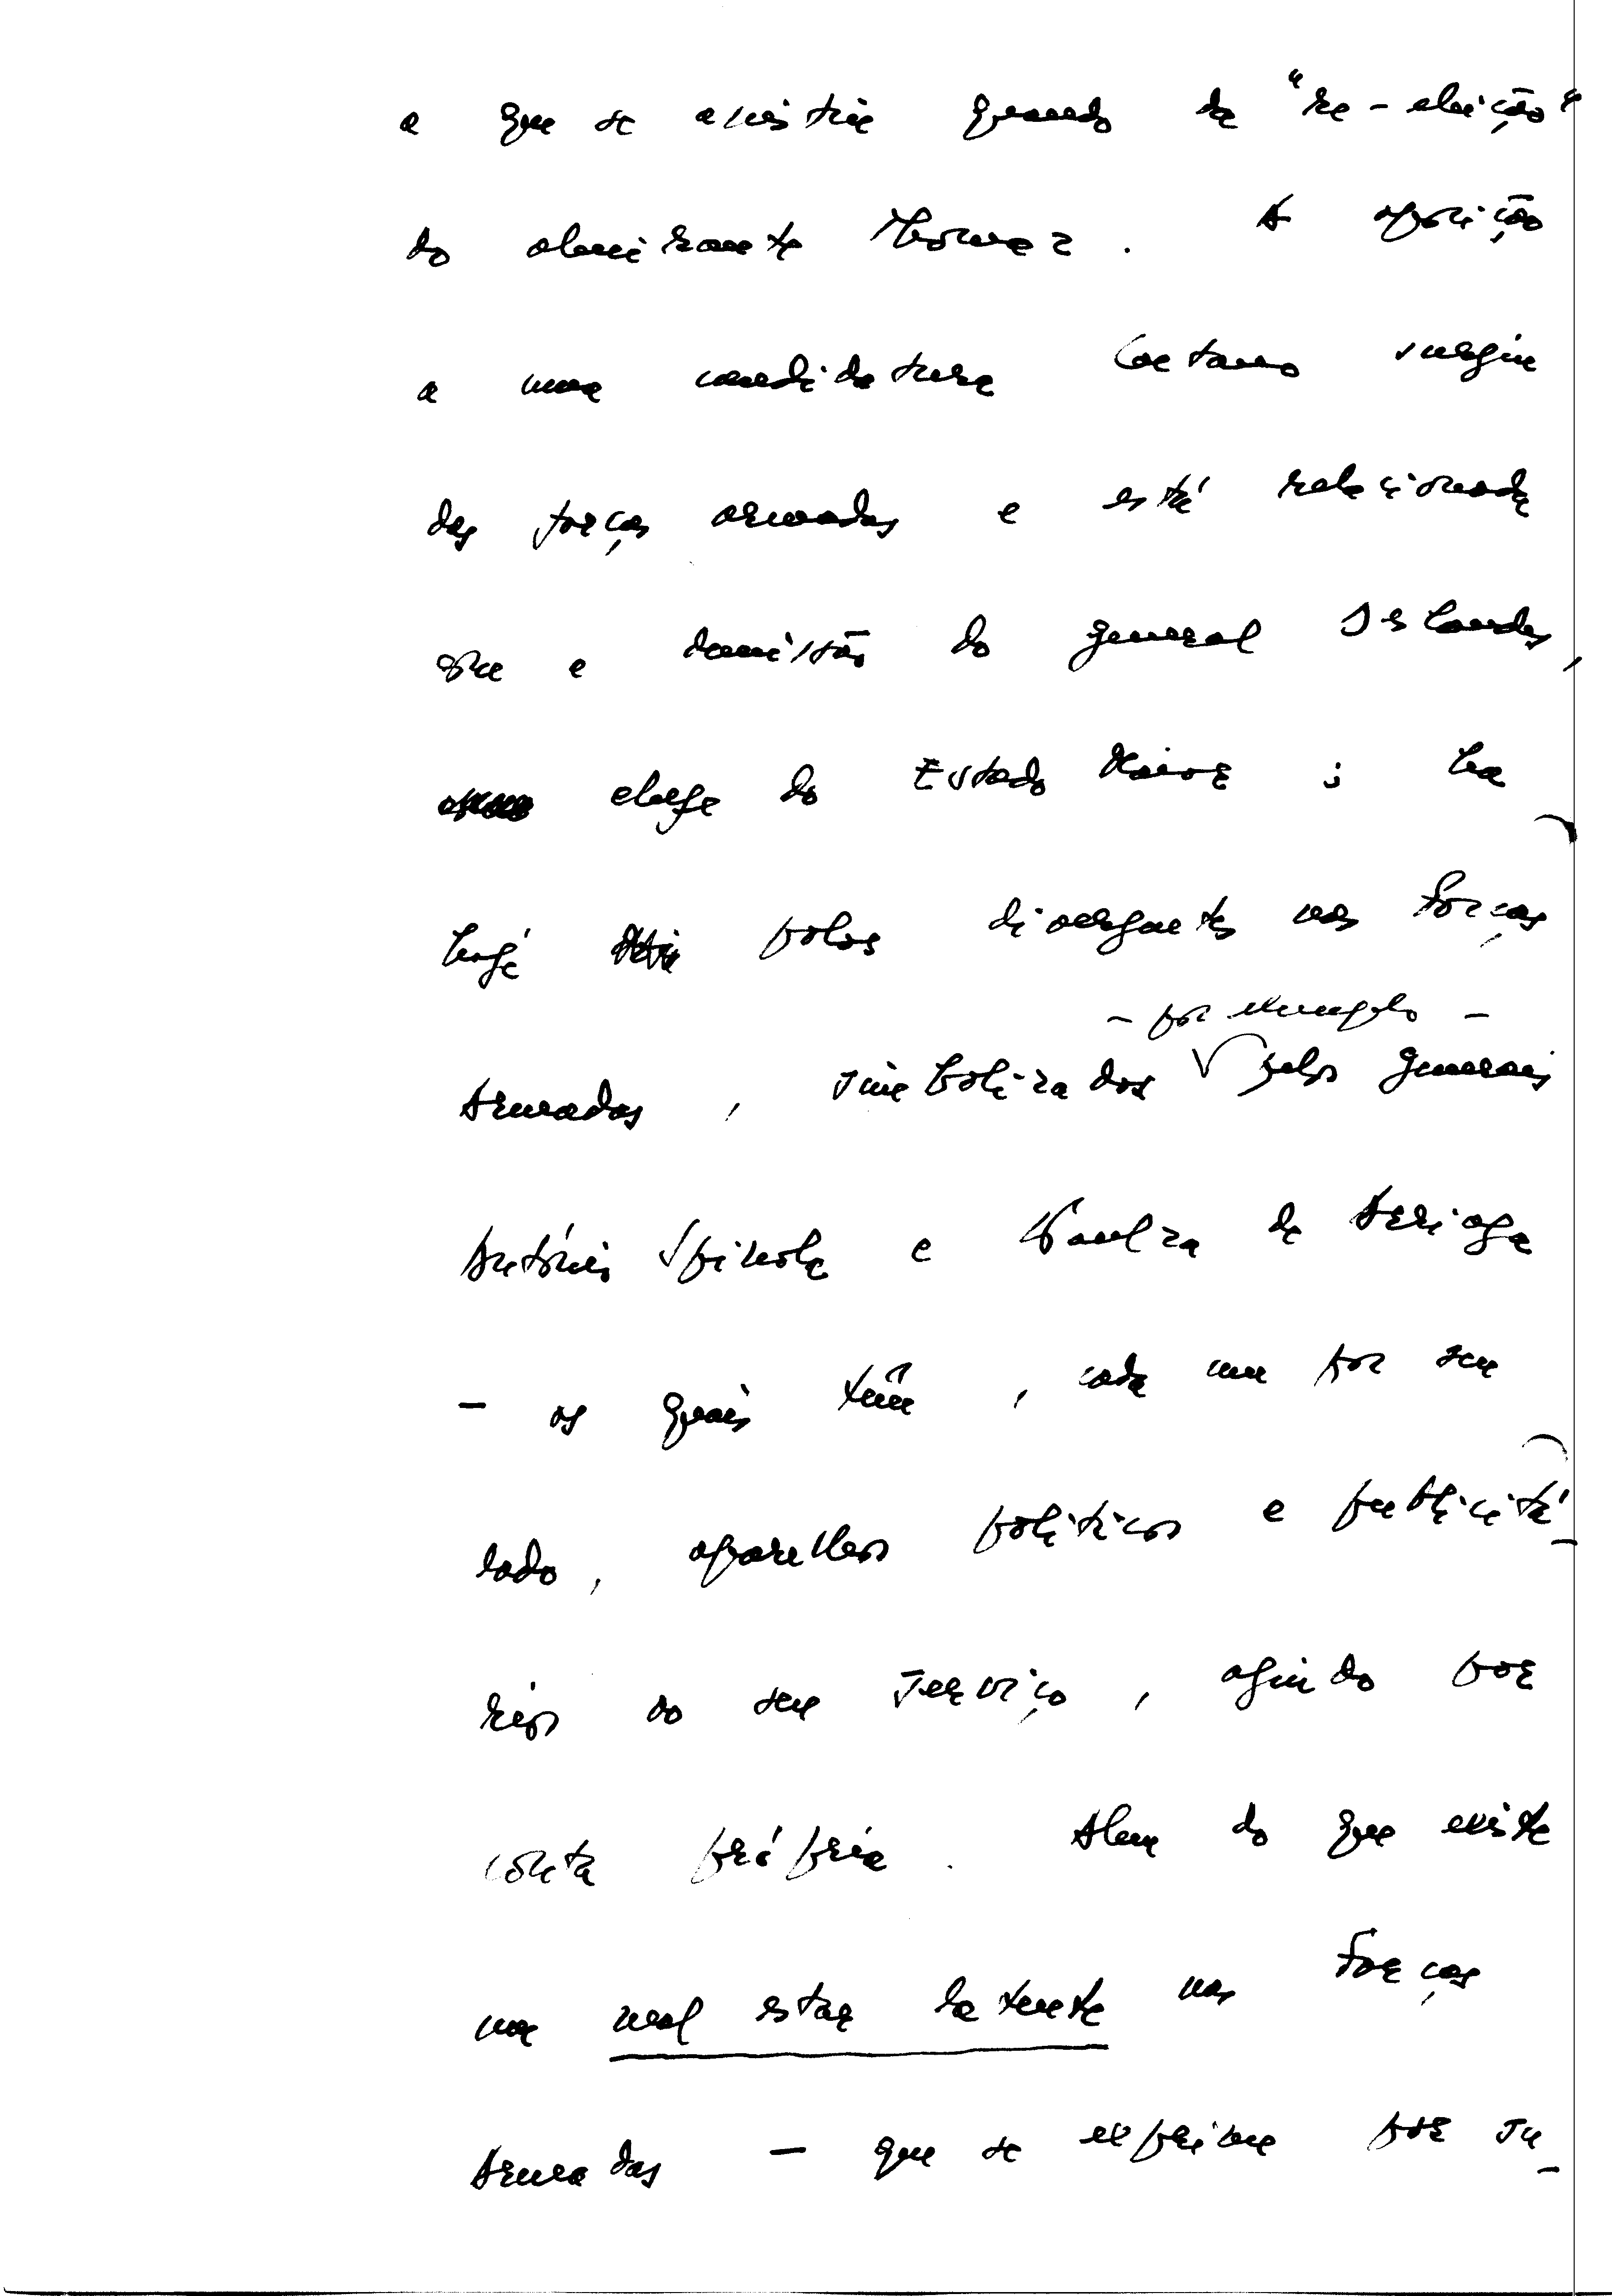 a que se assistiu quando da "re-eleição"
do almirante Thomaz. A oposição
a uma candidatura Caetano surgiu
das forças armadas e está relacionada
com a demissão do general Deslandes,
chefe do Estado Maior; há
hoje polos divergentes nas Forças
- por exemplo -
Armadas, simbolizados pelos generais
António Spínola e Kaulza de Arriaga
- os quais têm, cada um por seu
lado, aparelhos políticos e publicitá-
rios ao seu serviço, agindo por
conta própria. Alem do que existe
um mal estar latente nas Forças
Armadas - que se exprime por su-